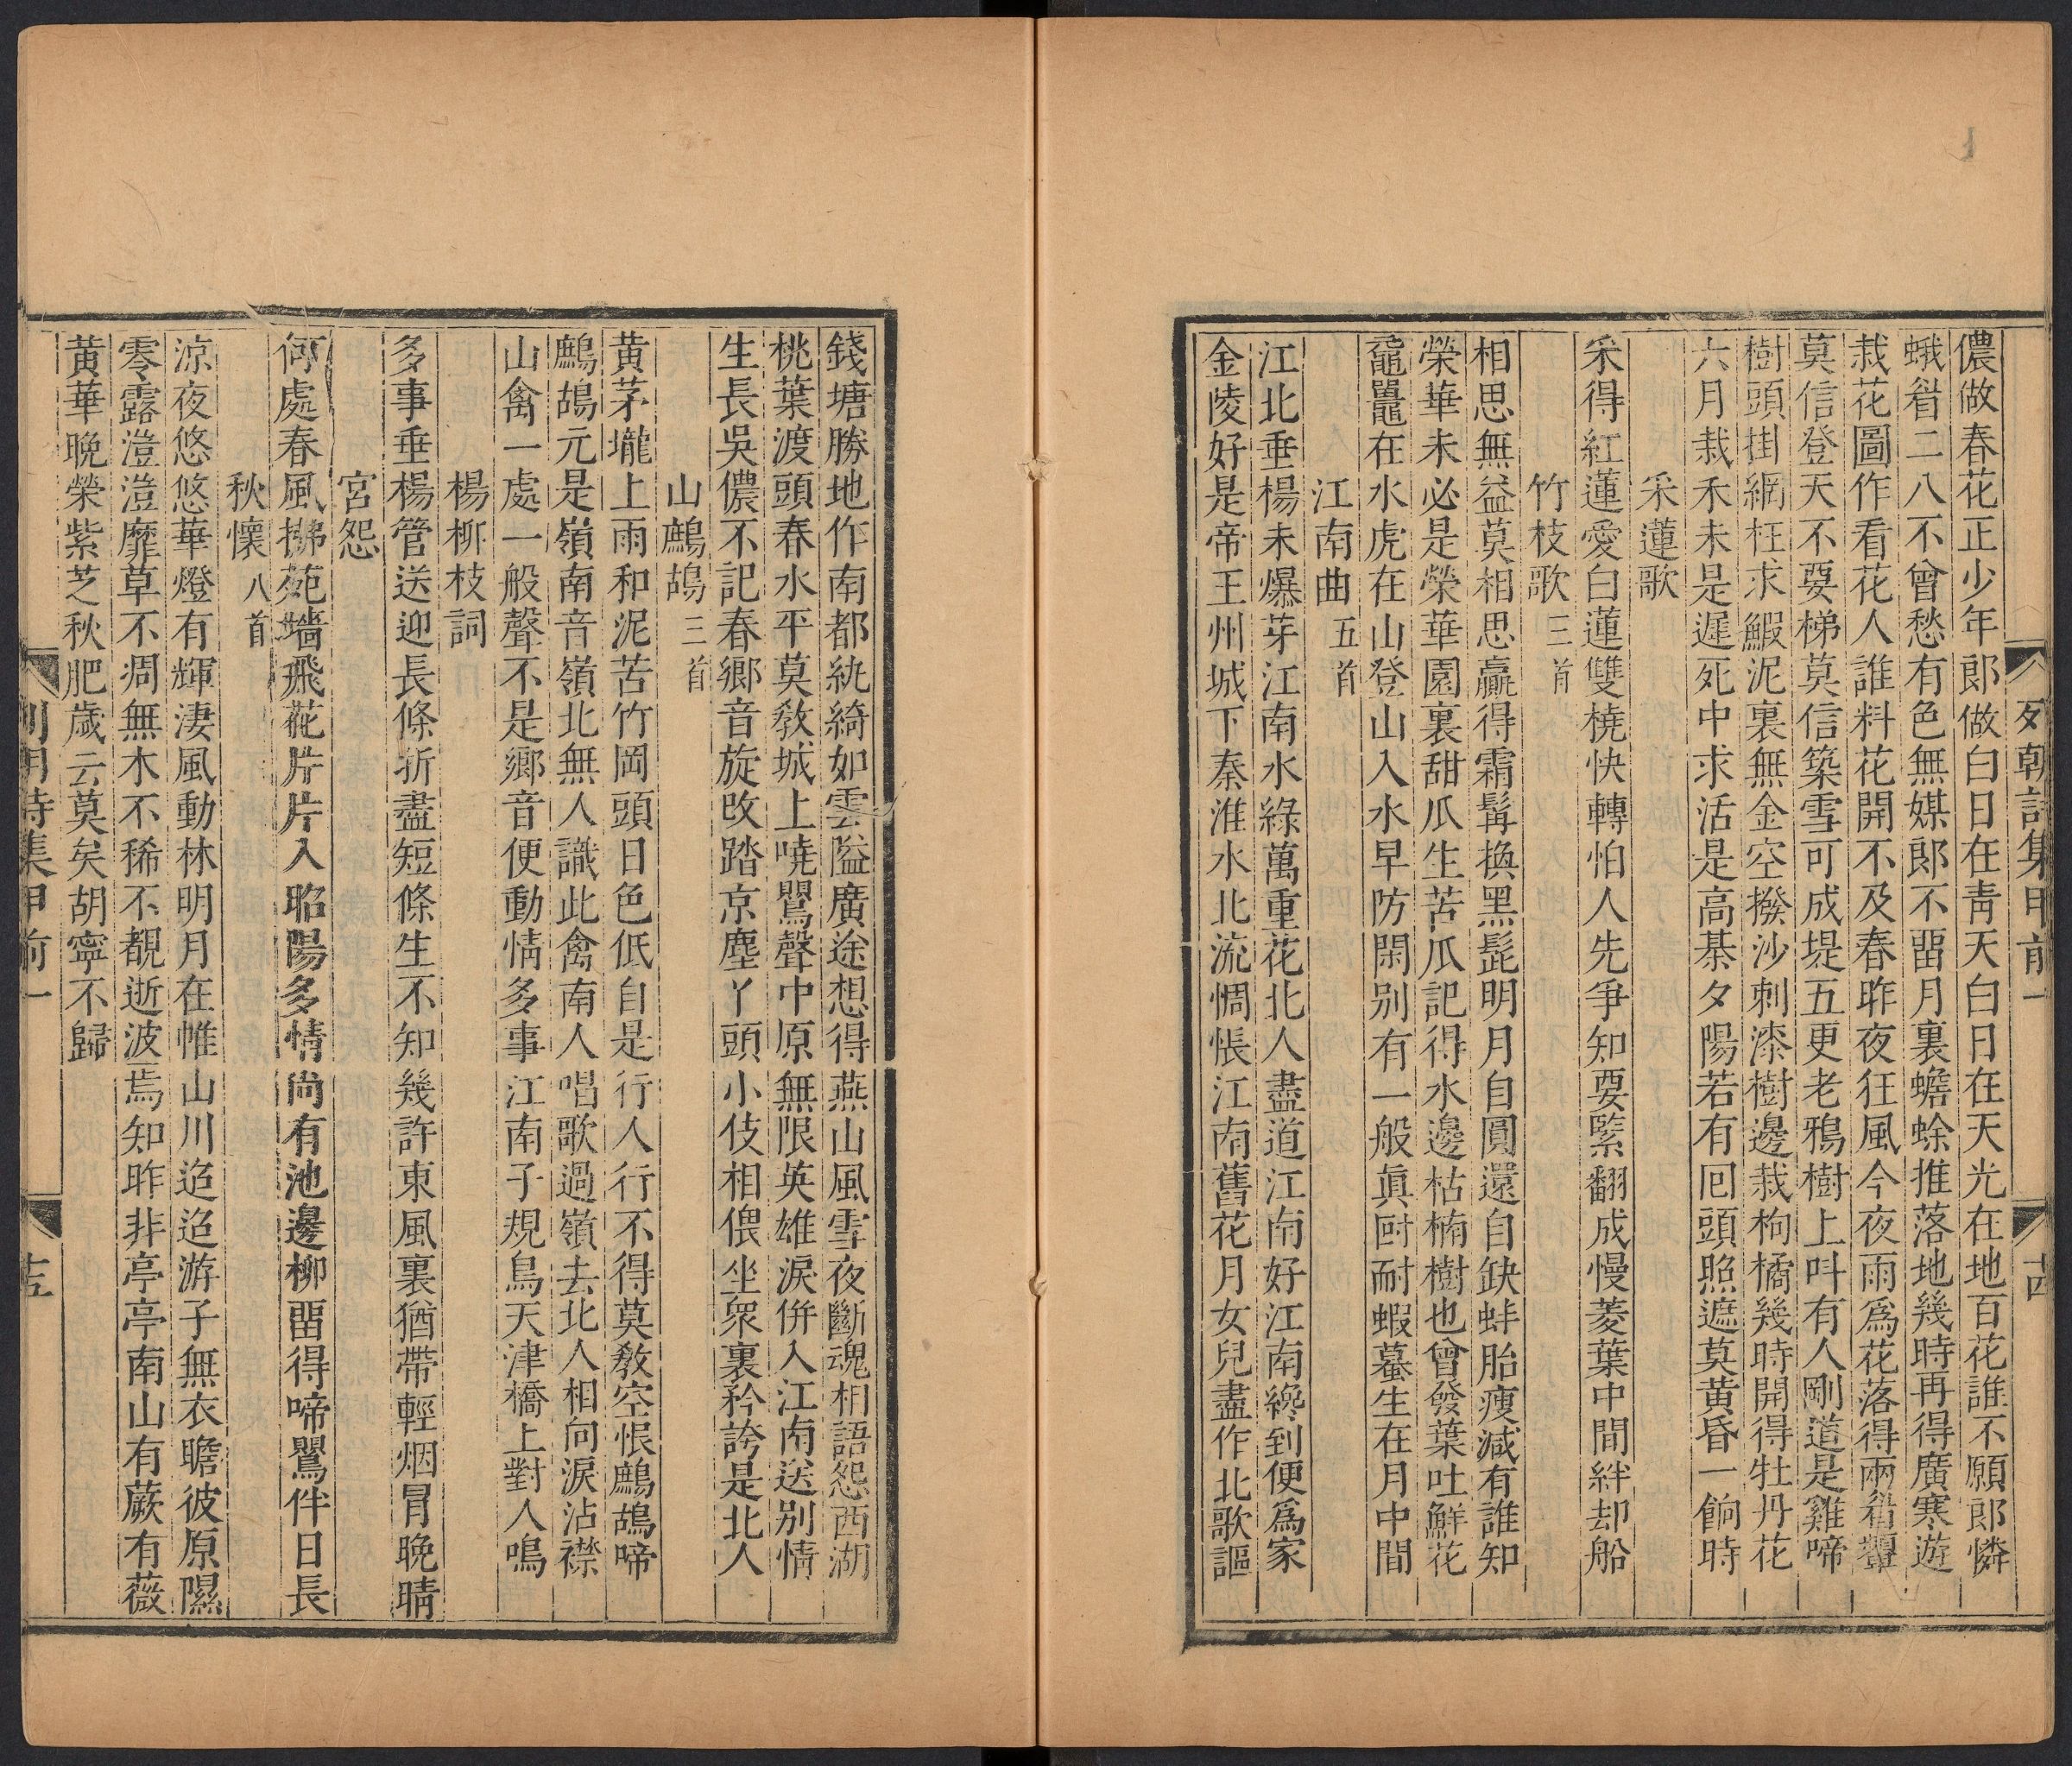 列朝詩集甲前一
十四
儂做春花正少年郎做白日在靑天白日在天光在地百花誰不願郎憐
蛾眉二八不曾愁有色無媒郎不畱月裏蟾蜍推落地幾時再得廣寒遊
栽花圖作看花人誰料花開不及春昨夜狂風今夜雨爲花落得兩眉顰
莫信登天不要梯莫信築雪可成堤五更老鴉樹上呌有人剛道是雞啼
樹頭掛網枉求鰕泥裏無金空撥沙刺漆樹邊栽枸橘幾時開得牡丹花
六月栽禾未是遲死中求活是高棊夕陽若有囘頭照遮莫黄昏一餉時
采蓮歌
采得紅蓮愛白蓮雙橈快轉怕人先爭知要緊翻成慢菱葉中間絆却船
竹枝歌三首
相思無益莫相思贏得霜髯換黑髭明月自圓還自缺蚌胎瘦減有誰知
榮華未必是榮華園裏甜瓜生苦瓜記得水邊枯楠樹也曾發葉吐鮮花
黿鼉在水虎在山登山入水早防閑别有一般眞尀耐蝦蟇生在月中間
江南曲五首
江北垂楊未爆芽江南水綠萬重花北人盡道江南好江南纔到便爲家
金陵好是帝王州城下秦淮水北流惆悵江南舊花月女兒盡作北歌謳
錢塘勝地作南都紈綺如雲隘廣途想得燕山風雪夜斷魂相語怨西湖
桃葉渡頭春水平莫敎城上嘵鸎聲中原無限英雄淚併入江南送别情
生長吳儂不記春鄉音旋改踏京塵丫頭小伎相偎坐衆裏矜誇是北人
山鷓鴣三首
黄茅壠上雨和泥苦竹岡頭日色低自是行人行不得莫敎空恨鷓鴣啼
鷓鴣元是嶺南音嶺北無人識此禽南人唱歌過嶺去北人相向淚沾襟
山禽一處一般聲不是鄉音便動情多事江南子規鳥天津橋上對人鳴
楊栁枝詞
多事垂楊管送迎長條折盡短條生不知幾許東風裏猶帶輕烟冐晚晴
宮怨
何處春風拂苑墻飛花片片入昭陽多情尚有池邊柳畱得啼鸎伴日長
秋懷八首
涼夜悠悠華燈有輝淒風動林明月在帷山川迢迢游子無衣瞻彼原隰
零露瀼瀼靡草不凋無木不稀不覩逝波焉知昨非亭亭南山有蕨有薇
黄華晚榮紫芝秋肥歳云莫矣胡寧不歸
列朝詩集甲前一
十五